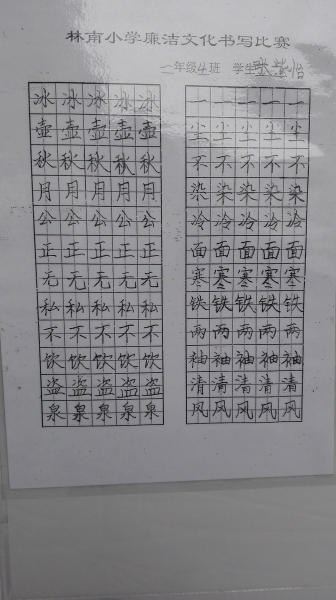 林南小学廉洁文化书写比赛
一年级4班 学生
冰冰冰冰冰
壶壶壶壶壶
秋秋秋秋秋
月月月月月
公公公公公
正正正正正
无无无无无
私私私私私
不不不不不
饮饮饮饮饮
盗盗盗盗盗
泉泉泉泉泉
一一一一一
尘尘尘尘尘
不不不不不
染染染染染
冷冷冷冷冷
面面面面面
寒寒寒寒寒
铁铁铁铁铁
两两两两两
袖袖袖袖袖
清清清清清
风风风风风